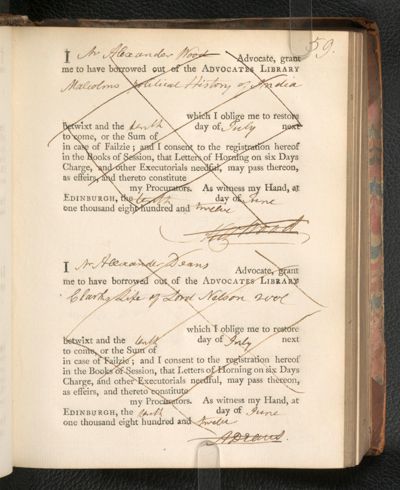 59.
I Mr Alexander Wood Advocate, grant
me to have borrowed out of the ADVOCATES LIBRARY
Malcolms Political History of India
which I oblige me to restore
betwixt and the tenth day of July next
to come, or the Sum of
in case of Failzie; and I consent to the registration hereof
in the Books of Session, that Letters of Horning on six Days
Charge, and other Executorials needful, may pass thereon,
as effeirs, and thereto constitute
my Procurators. As witness my Hand, at
EDINBURGH, the tenth day of June
one thousand eight hundred and twelve
Wood
I Mr Alexander Deans Advocate, grant
me to have borrowed out of the ADVOCATES LIBRARY
Clarks Life of Lord Nelson 2 vol
which I oblige me to restore
betwixt and the tenth day of July next
to come, or the Sum of
in case of Failzie; and I consent to the registration hereof
in the Books of Session, that Letters of Horning on six Days
Charge, and other Executorials needful, may pass thereon,
as effeirs, and thereto constitute
my Procurators. As witness my Hand, at
EDINBURGH, the tenth day of June
one thousand eight hundred and twelve
A Deans.